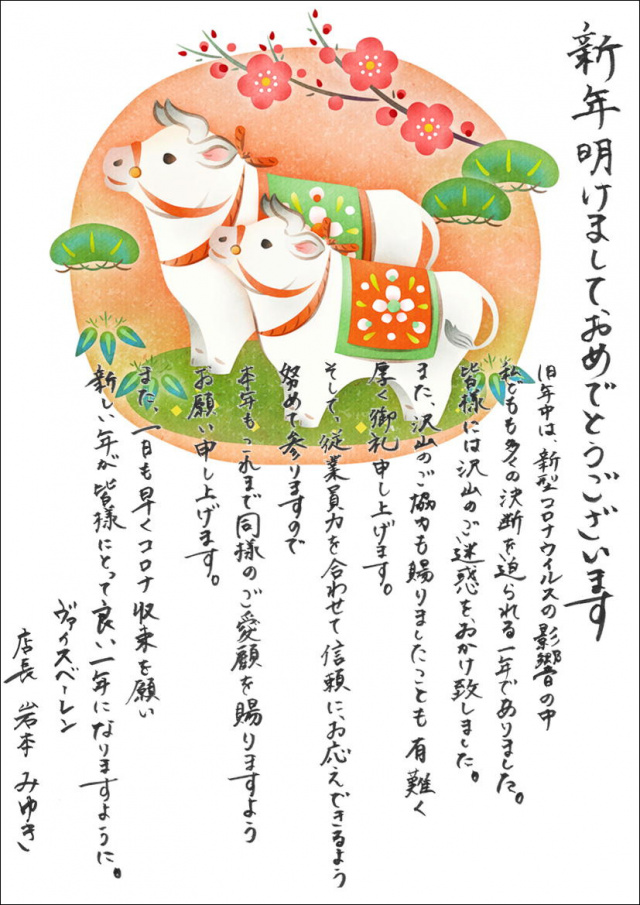 新年明けましておめでとうございます
旧年中は、新型コロナウイルスの影響の中
私どもも多くの決断を迫られる一年でありました。
皆様には沢山のご迷惑を、おかけ致しました。
また、沢山のご協力も賜りましたことも有難く
厚く御礼申し上げます。
そして、従業員力を合わせて信頼に、お応えできるよう
努めて参りますので
本年もこれまで同様のご愛顧を賜りますよう
お願い申し上げます。
また、一日も早くコロナ収束を願い
新しい年が皆様にとって良い一年になりますように。
ヴァイスベーレン
店長 岩本 みゆき